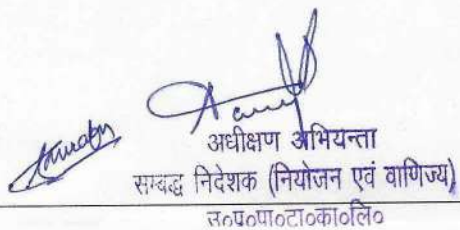 अधीक्षण अभियन्ता
सम्बद्ध निदेशक (नियोजन एवं वाणिज्य)
उ०प्र०पा०टा०का०लि०